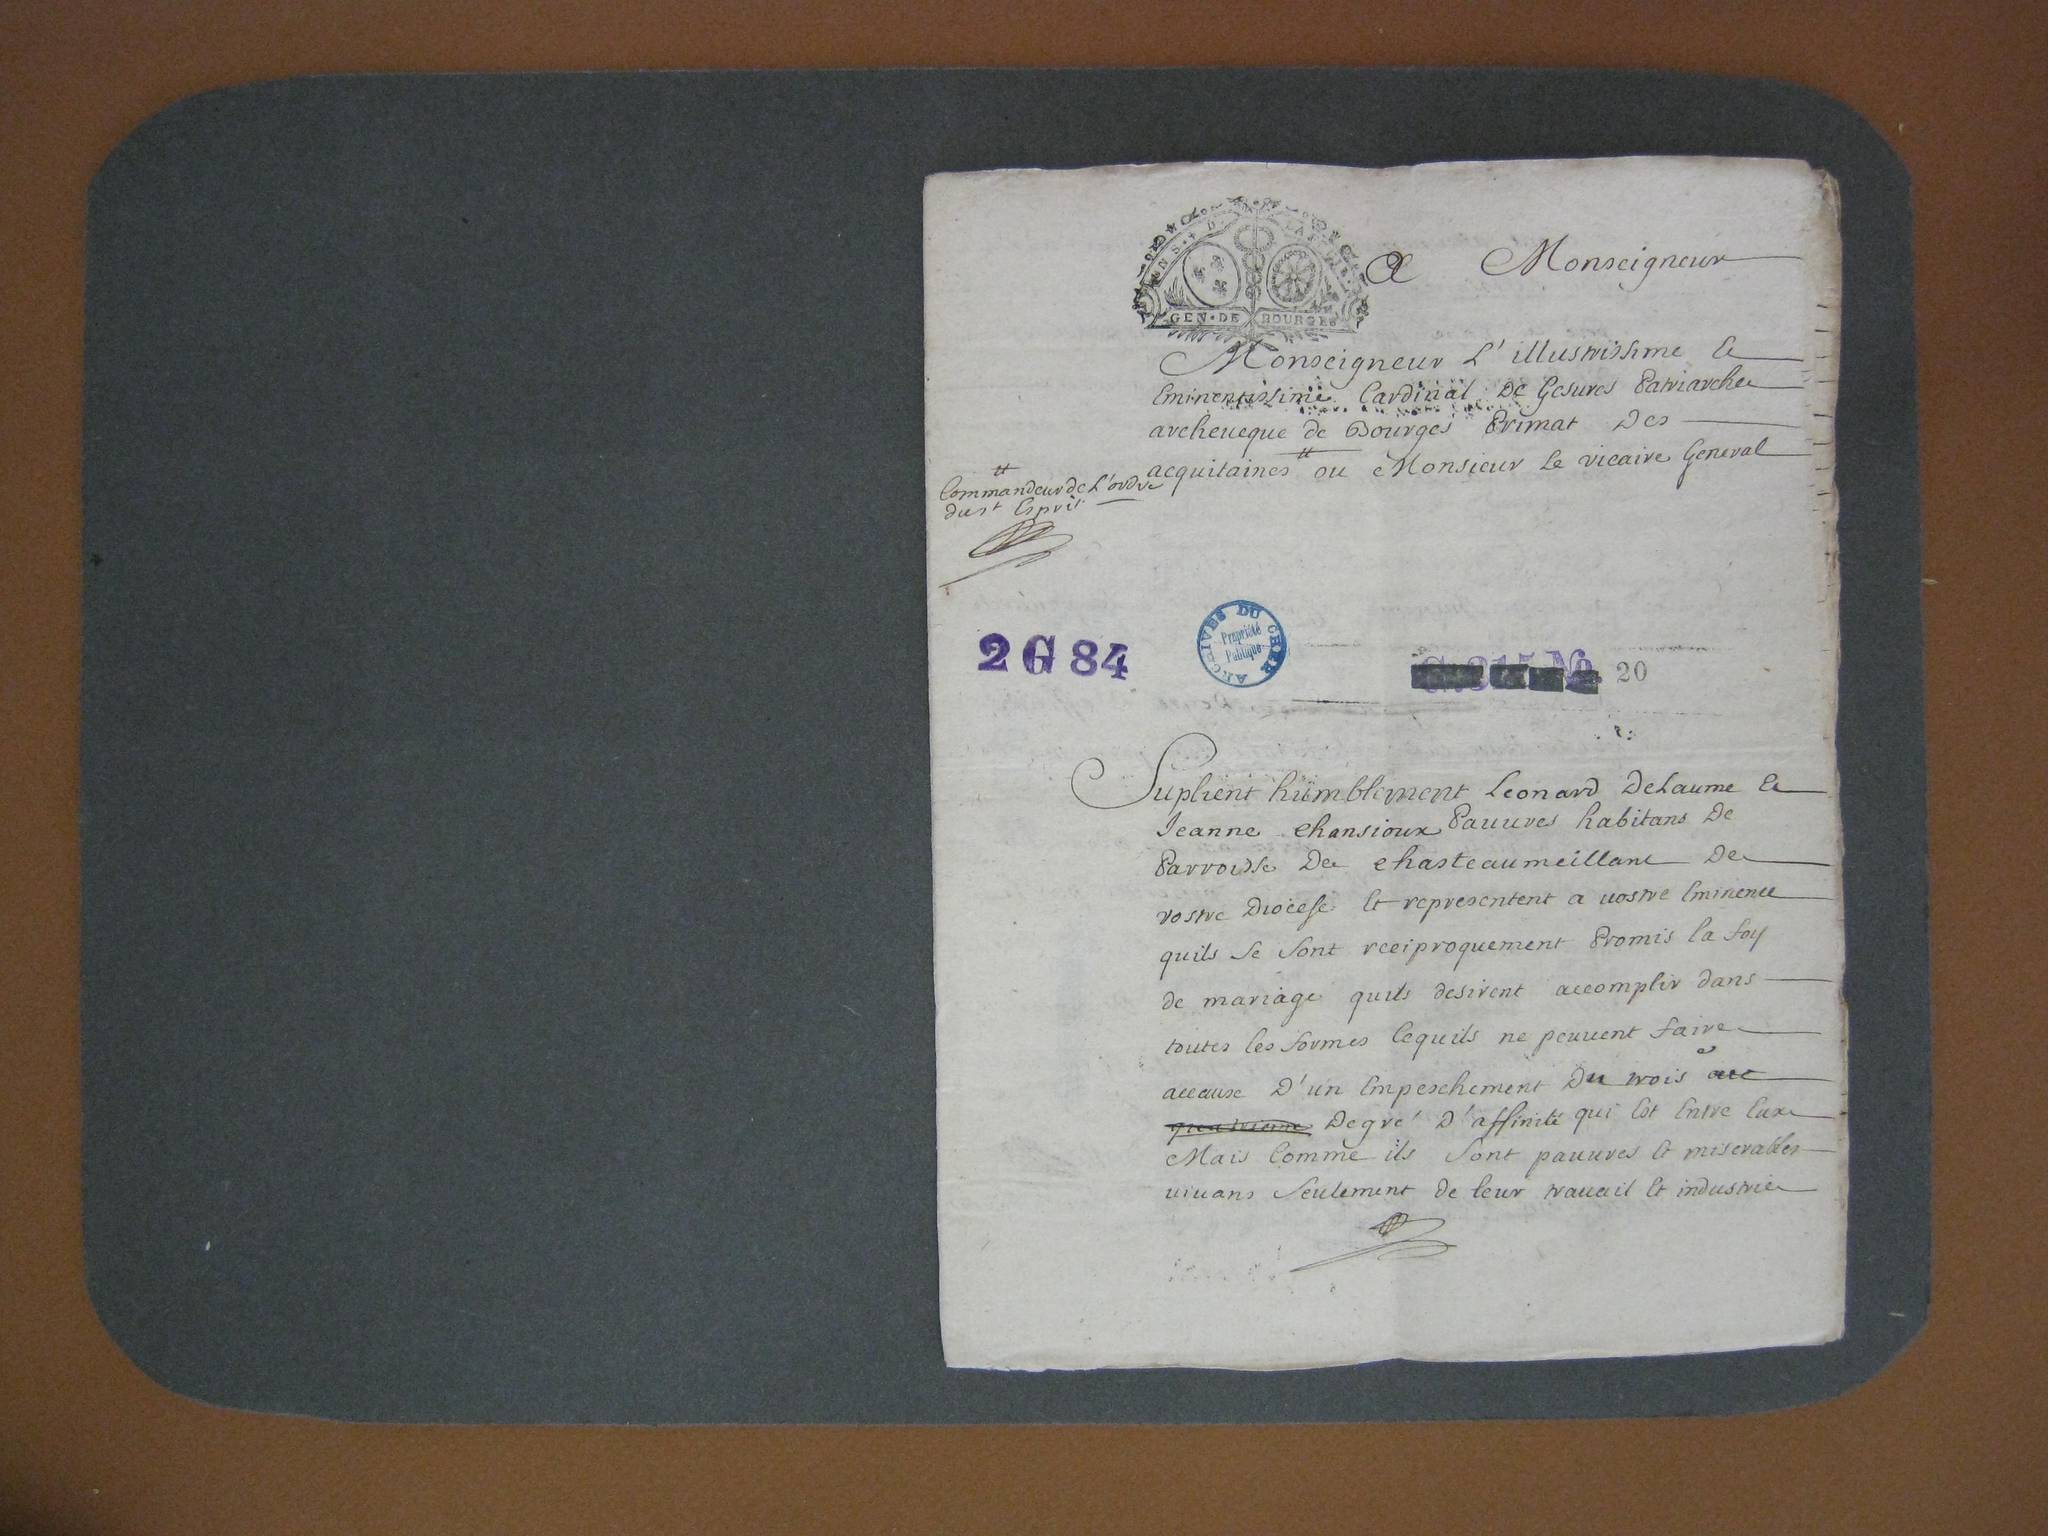 A Monseigneur
GEN • DE BOURGES
Monseigneur L'illustrissime Et
Eminentissime Cardinal De Gesures Patriarche
archeueque de Bourges Primat Des
acquitaines ou Monsieur Le vicaire General
Commandeur de L'ordre
du st Esprit
2 G 84
ARCHIVES DU CHER
Propriété
Publique
20
Suplient humblement Leonard DeLaume Et
Jeanne chansioux Pauures habitans De
Parroisse De chasteaumeillant De
vostre Diocese Et representent a uostre Eminence
quils se sont reciproquement Promis la foy
de mariage quils desirent accomplir dans
toutes les formes Cequils ne peuuent faire
accause D'un Empeschement Du trois e au
quatrieme Degré D'affinité qui Est Entre Eux
Mais Comme ils sont pauures Et miserables
uiuans seulement de leur trauail Et industrie